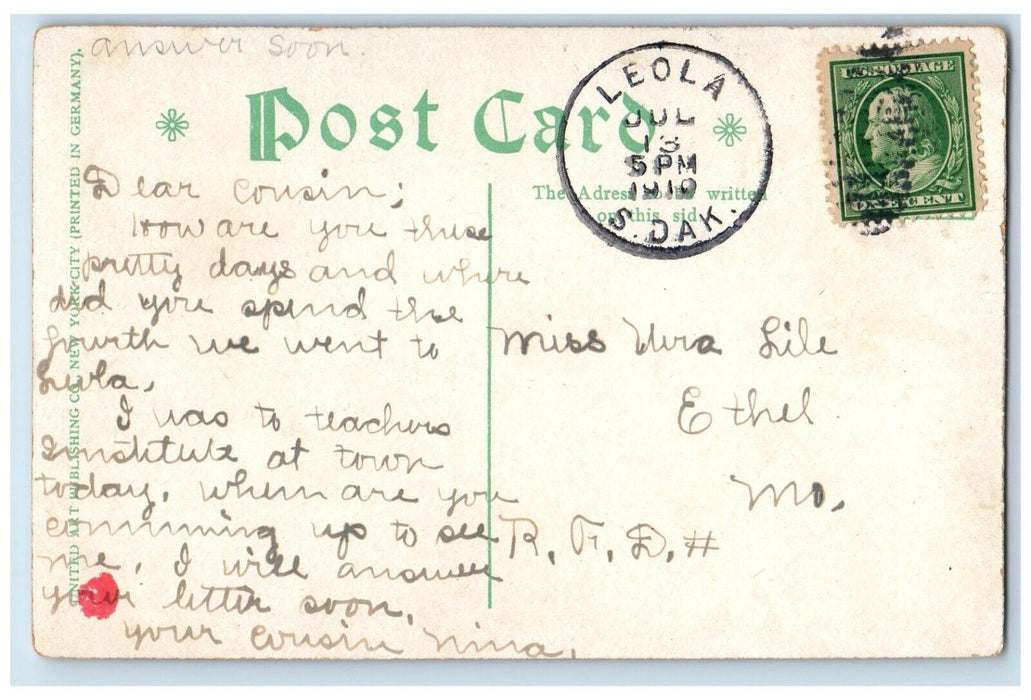 answer soon.
Post Card
LEOLA
JUL
13
5 PM
1910
S. DAK.
U.S. POSTAGE
CENT
The Adress written
on this sid
UNITED ART PUBLISHING CO., NEW YORK CITY (PRINTED IN GERMANY).
Dear Cousin;
How are you these
pretty days and where
did you spend the
fourth we went to
Leola.
I was to teachers
institute at town
today. when are you
comming up to see
me. I will answer
your letter soon.
your cousin Nina.
Miss Lile
Ethel
Mo.
R. F. D. #